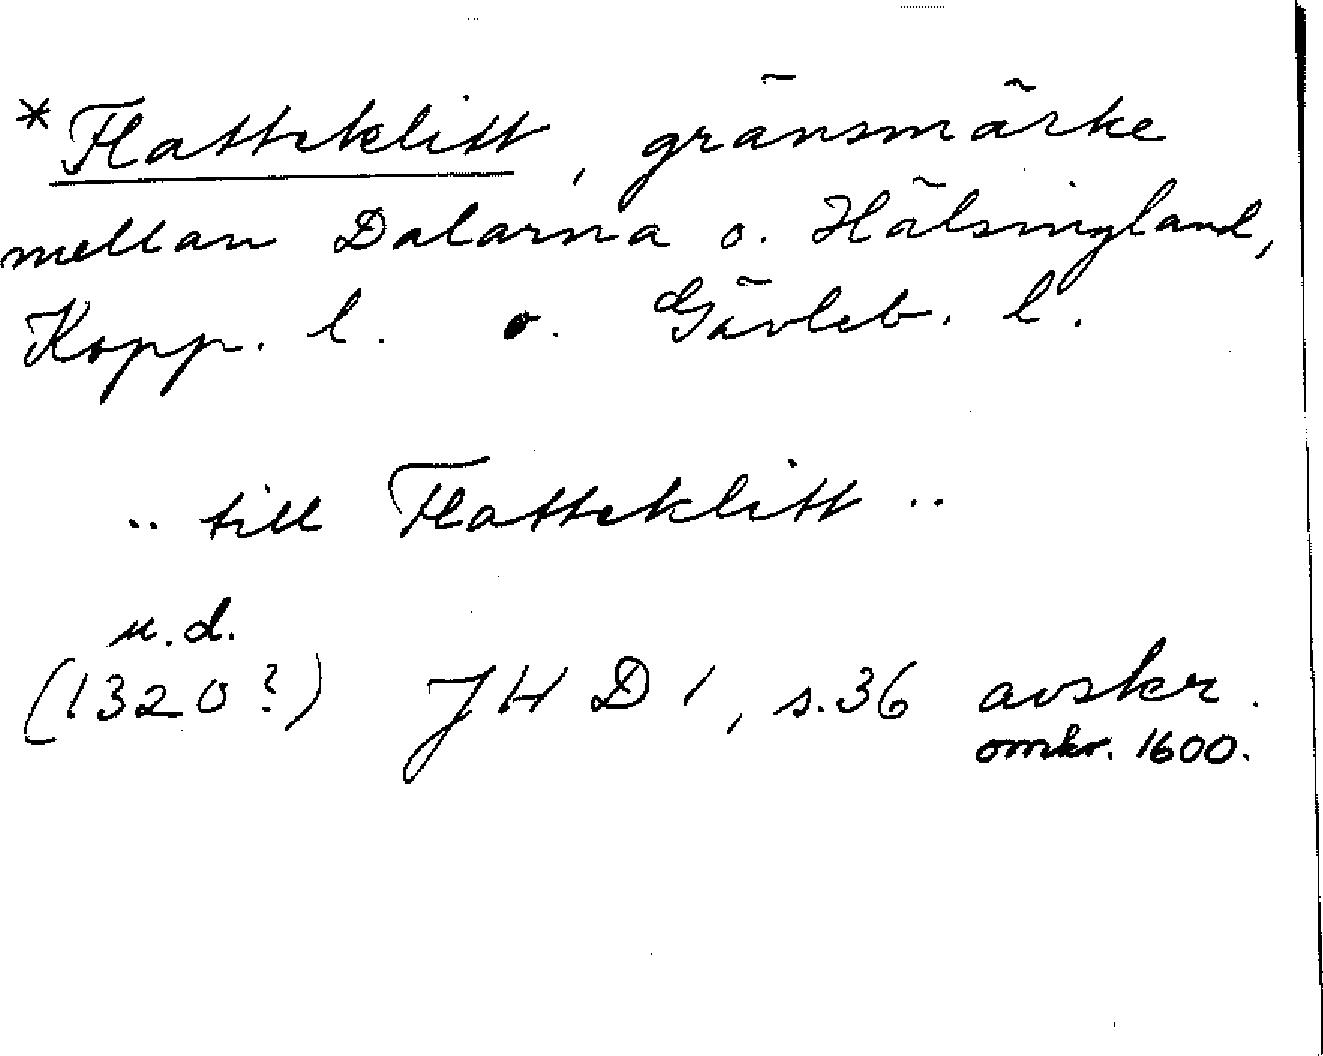 *Flatteklitt, gränsmärke
mellan Dalarna o. Hälsingland,
Kopp. l. o. Gävleb. l.
.. till Flatteklitt ..
u.d.
(1320?) JHD 1, s.36 avskr.
omkr. 1600.